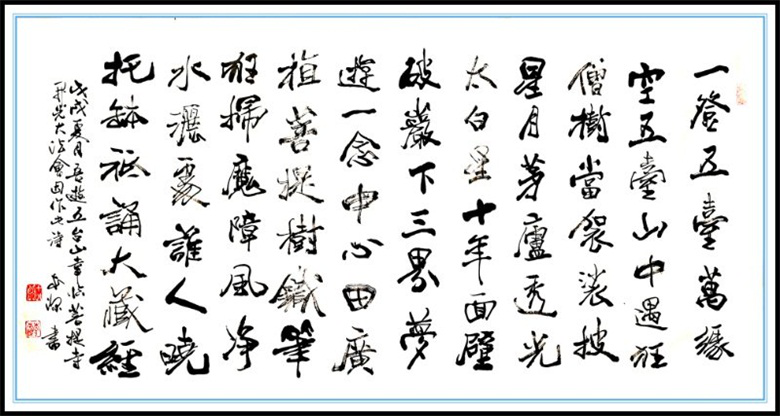 一登五臺萬緣
空五臺山中遇狂
僧樹當袈裟披
星月茅廬透光
太白星十年面壁
破巖下三界夢
遊一念中心田廣
植菩提樹鐵筆
狂掃魔障風净
水灑裏誰人曉
托缽祗誦大藏經
戊戌夏月吾遊五台山幸臨菩提寺
开光大法會因作此詩 書